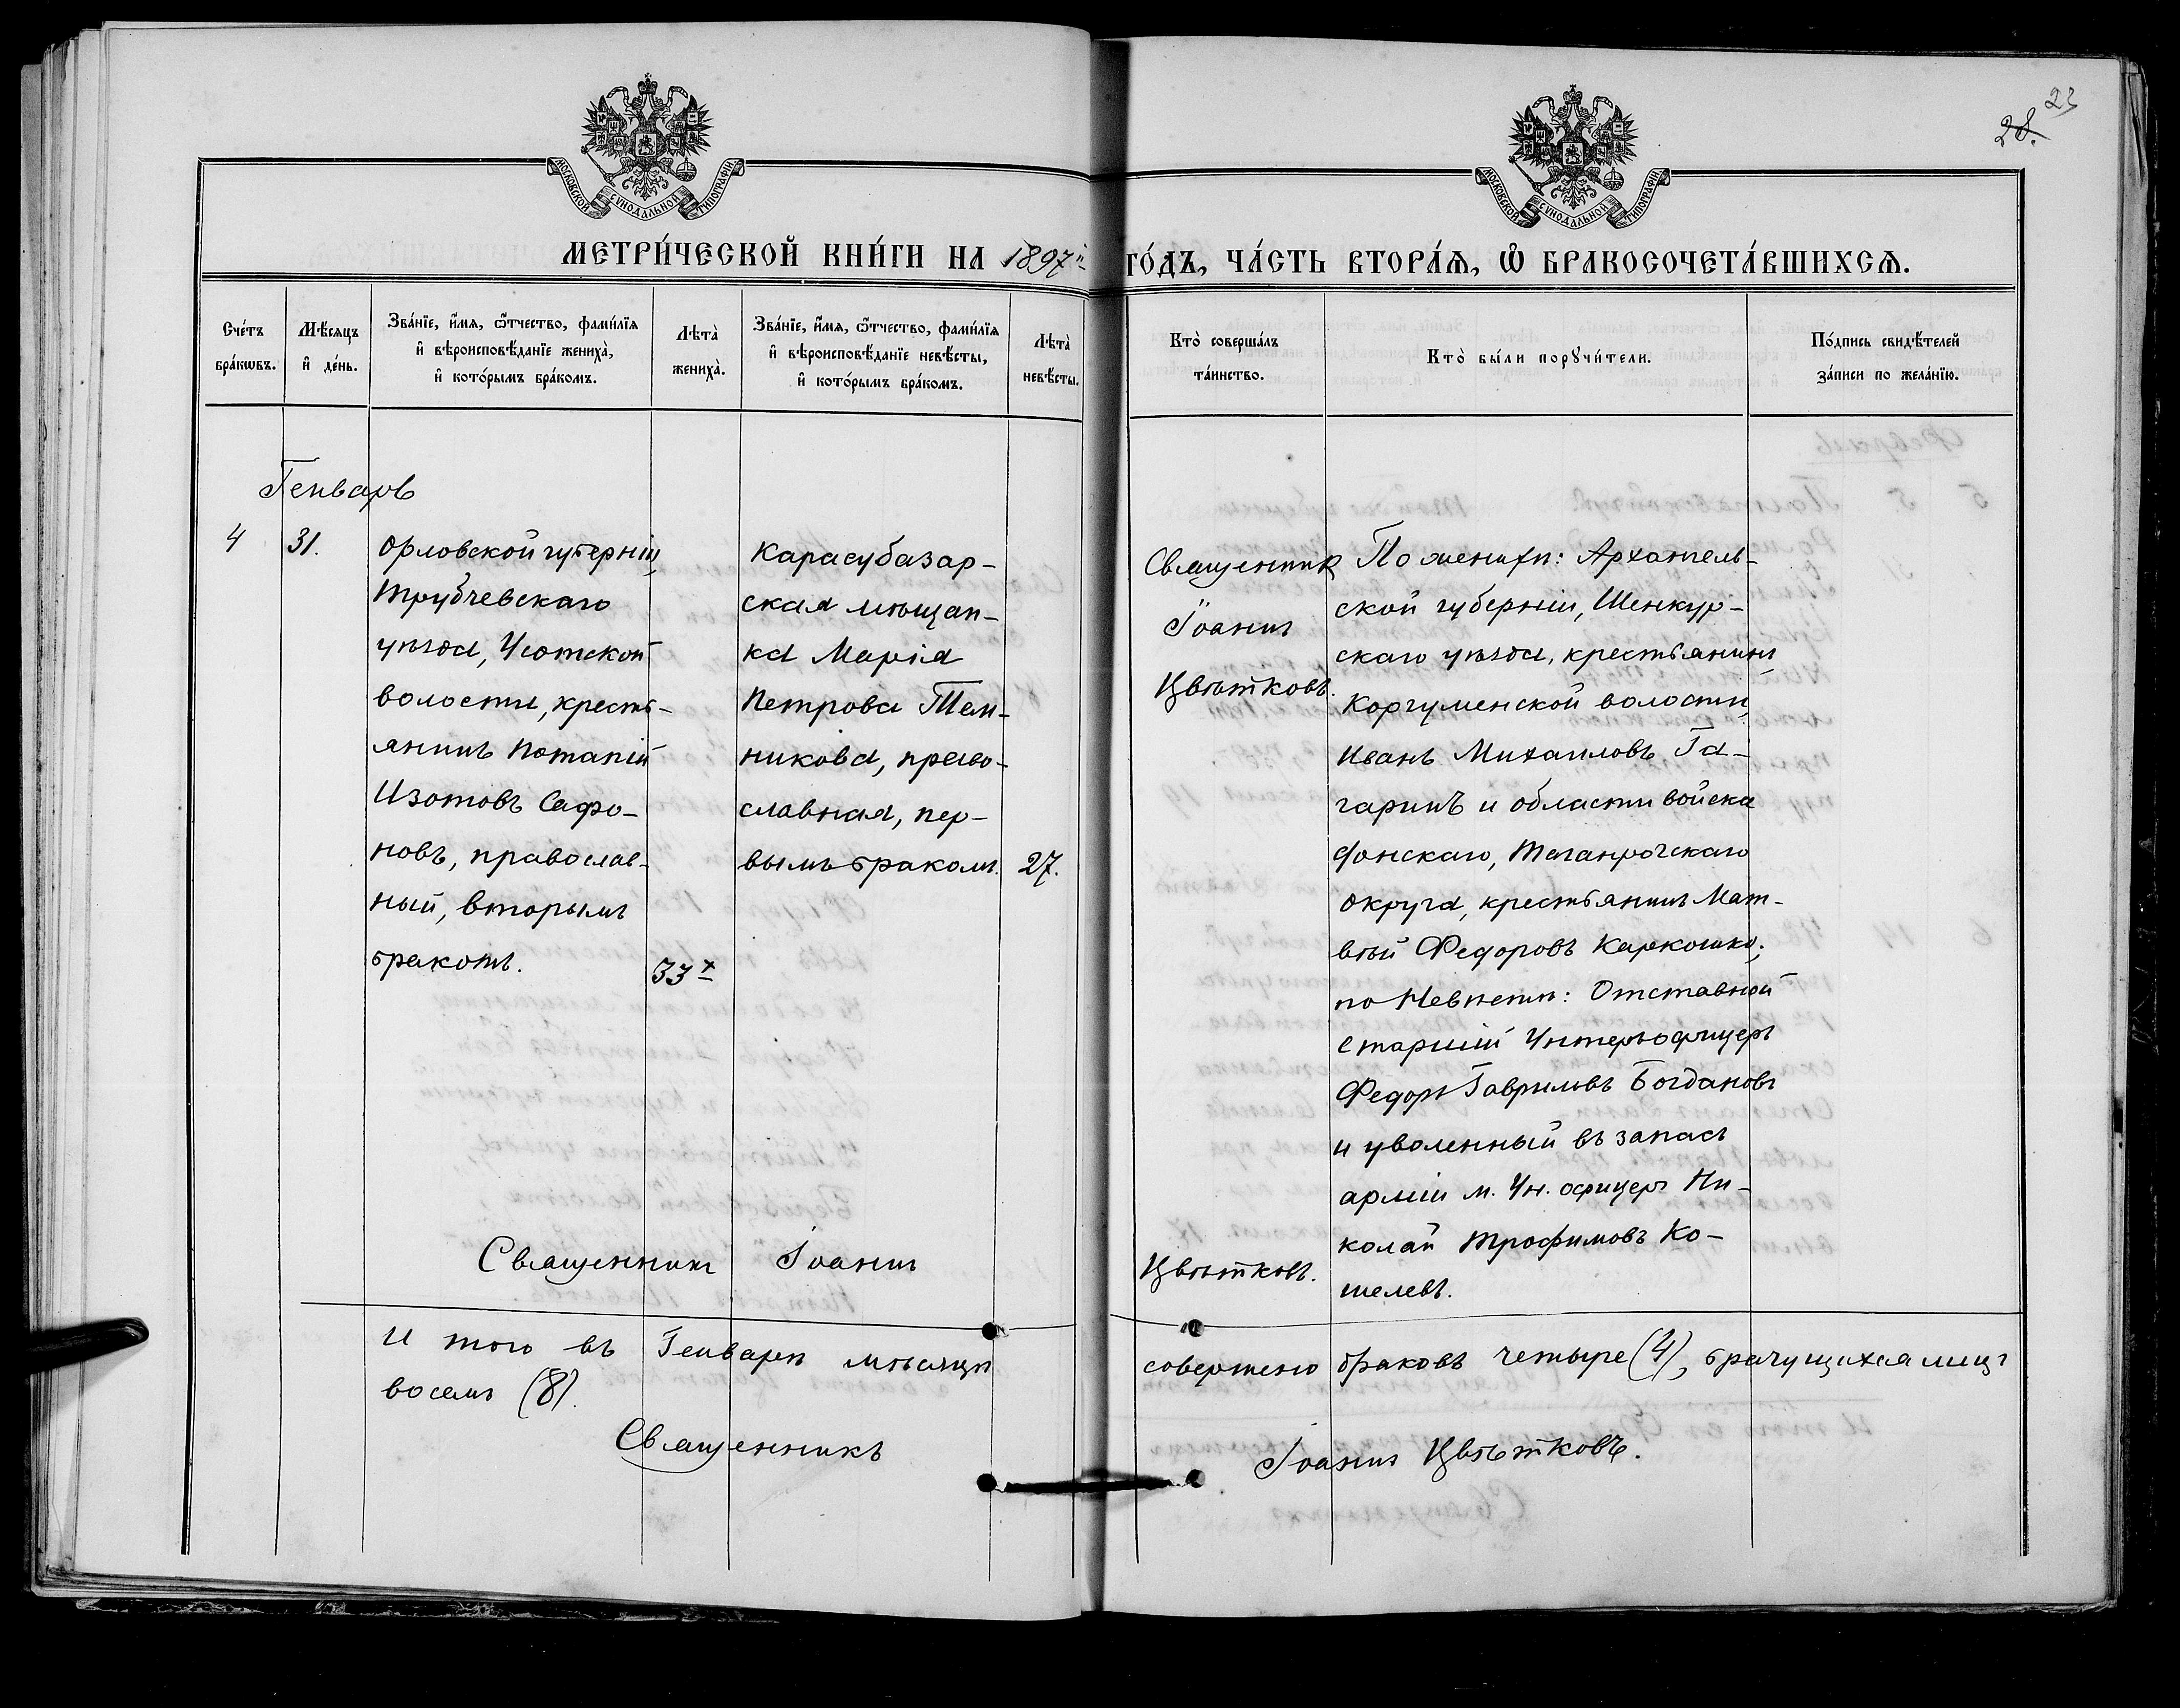 23
28.
МОСКОВСКОЙ СѴНОДАЛЬНОЙ ТИПОГРАФІИ
МОСКОВСКОЙ СѴНОДАЛЬНОЙ ТИПОГРАФІИ
МЕТРИ́ЧЕСКОЙ КНИ́ГИ НА 1897й ГО́ДЪ, ЧА́СТЬ ВТОРА́Ѧ, Ѽ БРАКОСОЧЕТА́ВШИХСѦ.
Сче́тъ
бра́кѡвъ.
Мѣ́сѧцъ
и҆ де́нь.
Зва́нїе, и҆́мѧ, ѻ҆́тчество, фами́лїѧ
и҆ вѣроисповѣ́данїе жениха̀,
и҆ кото́рымъ бра́комъ.
Лѣта̀
жениха̀.
Зва́нїе, и҆́мѧ, ѻ҆́тчество, фами́лїѧ
и҆ вѣроисповѣ́данїе невѣ́сты,
и҆ кото́рымъ бра́комъ.
Лѣта̀
невѣ́сты.
Кто̀ соверша́лъ
та́инство.
Кто̀ бы́ли порꙋчи́тели.
По́дпись свидѣ́телей
за́писи по жела́нїю.
Генварь
4
31.
Орловской губерніи,
Трубчевскаго
уѣзда,
волости, кресть-
янинъ Потапій
Изотовъ Сафо-
новъ, православ-
ный, вторымъ
бракомъ.
33х
Карасубазар-
ская мѣщан-
ка Марія
Петрова Тем-
никова, право-
славная, пер-
вымъ бракомъ.
27.
Священникъ
Іоаннъ
Цвѣтковъ.
По женихѣ: Архангель-
ской губерніи, Шенкур-
скаго уѣзда, крестьянинъ
волости,
Иванъ Михаиловъ Га-
гаринъ и области войска
Донскаго, Таганрогскаго
округа, крестьянинъ Мат-
вѣй Федоровъ
по Невѣстѣ: Отставной
старшій Унтеръ офицеръ
Федоръ Гавриловъ Богдановъ
и уволенный въ запасъ
арміи м. Ун. офицеръ Ни-
колай Трофимовъ Ко-
шелевъ.
Священникъ Іоаннъ Цвѣтковъ.
И того въ Генварѣ мѣсяцѣ совершено браковъ четыре (4), брачущихся лицъ
восемь (8).
Священникъ Іоаннъ Цвѣтковъ.